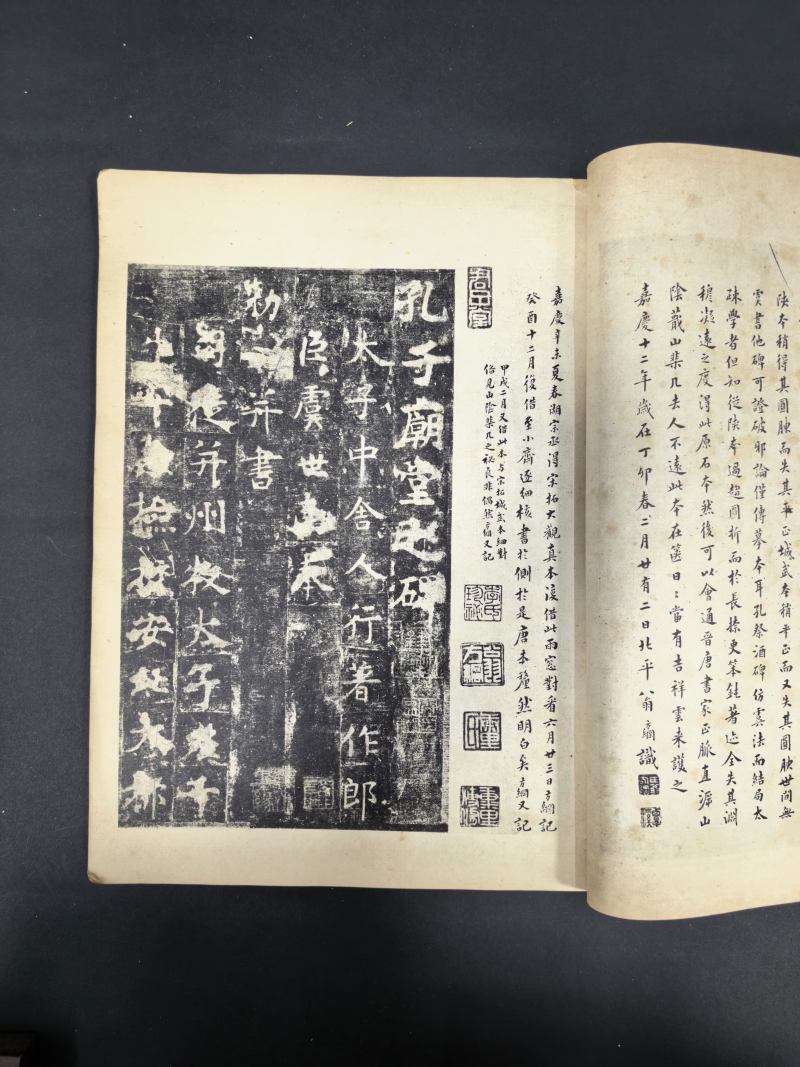 陝本稍得其圓腴而失其平正城武本稍平正而又失其圓腴世間無
虞書他碑可證破邪論僅傳摹本耳孔祭酒碑仿虞法而結局太
疎學者但知從陝本過趨圓折而於長捺更笨鈍著迹全失其淵
穆凝遠之度得此原石本然後可以會通晉唐書家正脈直泝山
陰蕺山棐几去人不遠此本在篋日〻當有吉祥雲來護之
嘉慶十二年歲在丁卯春二月廿有二日北平翁方綱識
嘉慶辛未夏春湖宗丞得宋拓大觀真本復借此雨窓對看六月廿三日方綱記
癸酉十二月復借至小齋逐細核書於側於是唐本釐然明白矣方綱又記
甲戌二月又借此本與宋拓城武本細對
見山陰棐几之祕良非偶然方綱又記
孔子廟堂之碑
太子中舍人行著作郎
臣虞世南奉
勅撰并書
司徒并州牧太子左千
牛率兼檢校安北大都